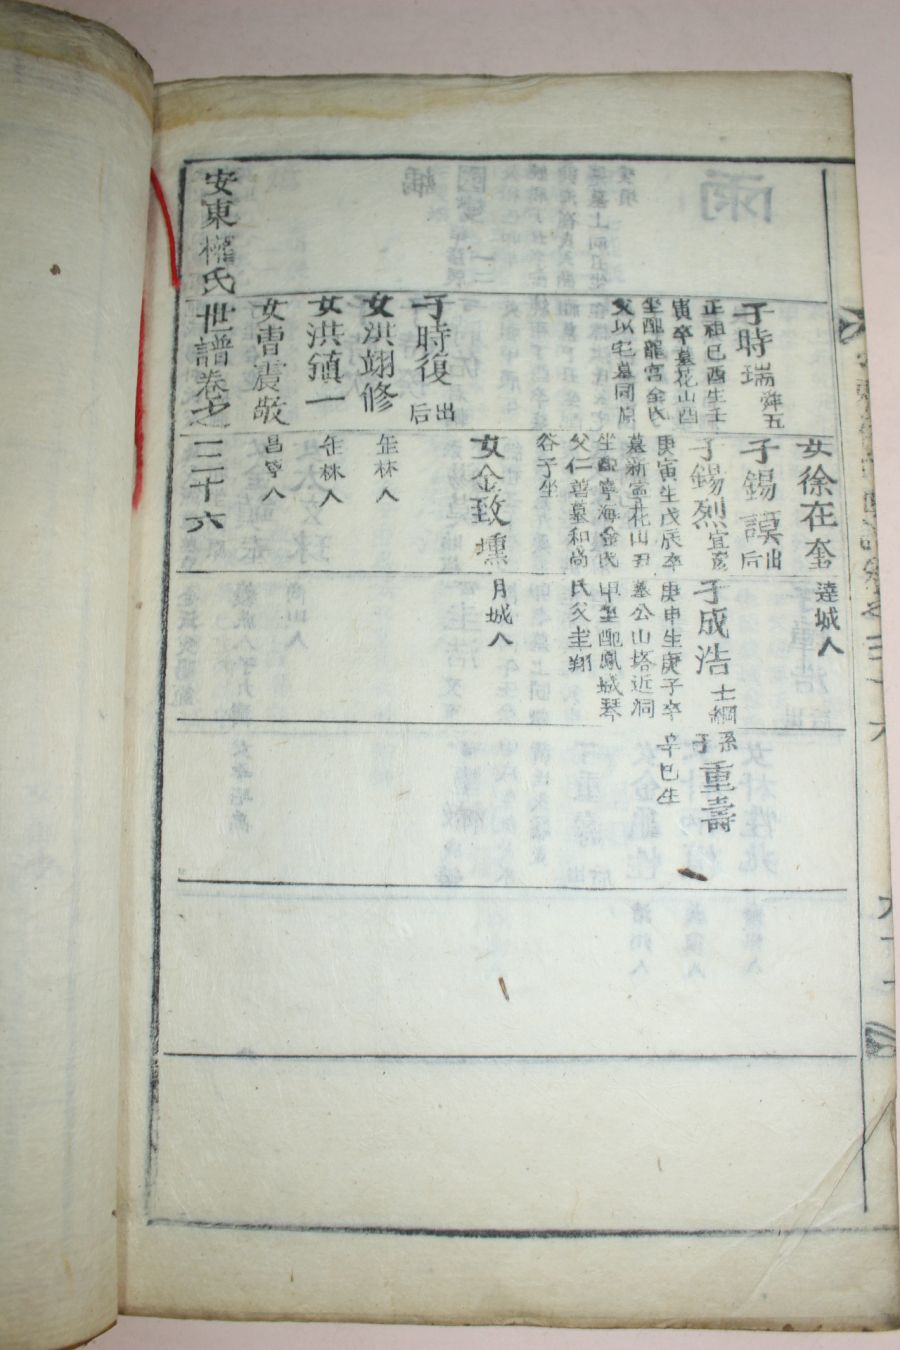 女徐在奎 達城人
子時瑞 舜五
正祖己酉生壬
寅卒墓花山酉
坐配龍宮金氏
父以宅墓同原
子錫謨 出后
子錫烈 宜寬
庚寅生戊辰卒
墓新寧花山丑
坐配寧海金氏
父仁喆墓和尚
谷子坐
子成浩 士綱
庚申生庚子卒
墓公山塔近洞
甲坐配鳳城琴
氏父圭翔
孫子重壽
辛巳生
女金致壎 月城人
子時復 出后
女洪翊修 缶林人
女洪鎭一 缶林人
女曺震敬 昌寧人
安東權氏世譜卷之三十六